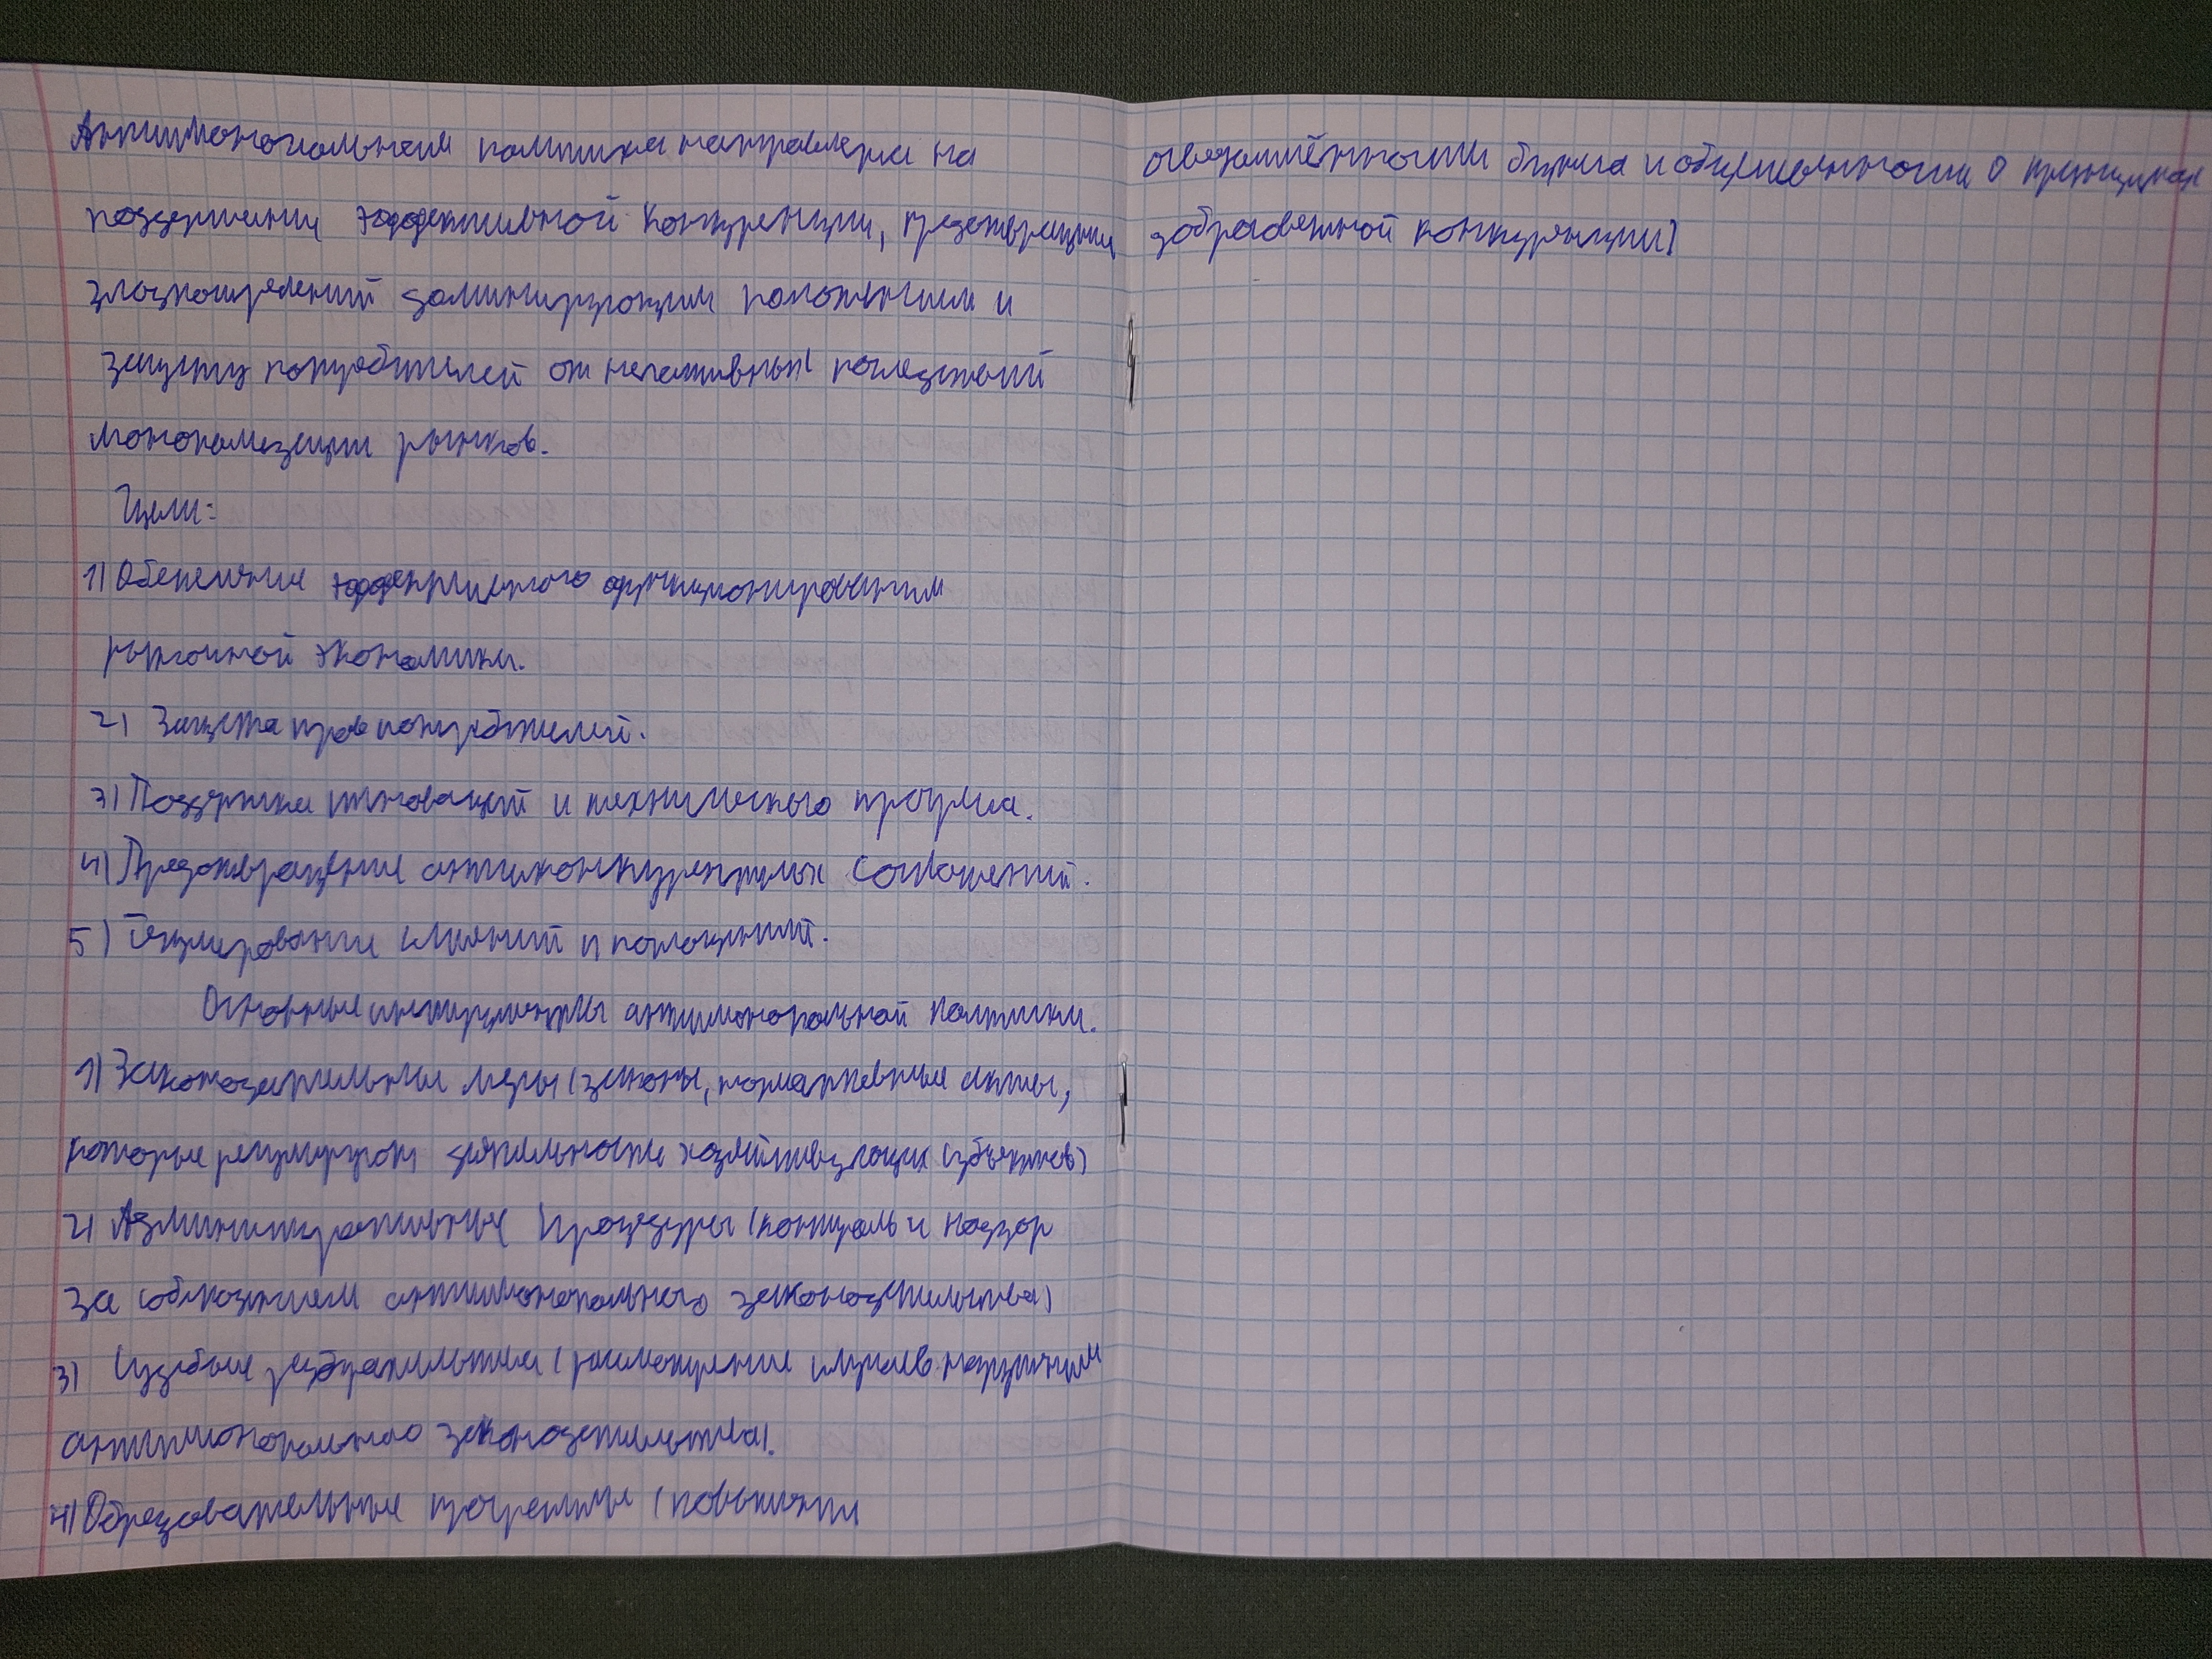 Антимонопольная политика направлена на
поддержание эффективной конкуренции, предотвращение
злоупотреблений доминирующим положением и
защиту потребителей от негативных последствий
монополизации рынков.
Цели:
1) Обеспечение эффективного функционирования
рыночной экономики.
2) Защита прав потребителей.
3) Поддержка инноваций и технического прогресса.
4) Предотвращение антиконкурентных соглашений.
5) Регулирование слияний и поглощений.
Основные инструменты антимонопольной политики.
1) Законодательные меры (законы, нормативные акты,
которые регулируют деятельность хозяйствующих субъектов)
2) Административные процедуры (контроль и надзор
за соблюдением антимонопольного законодательства)
3) Судебные разбирательства (рассмотрение случаев нарушения
антимонопольного законодательства).
4) Образовательные программы (повышение
осведомлённости бизнеса и общественности о принципах
добросовестной конкуренции)